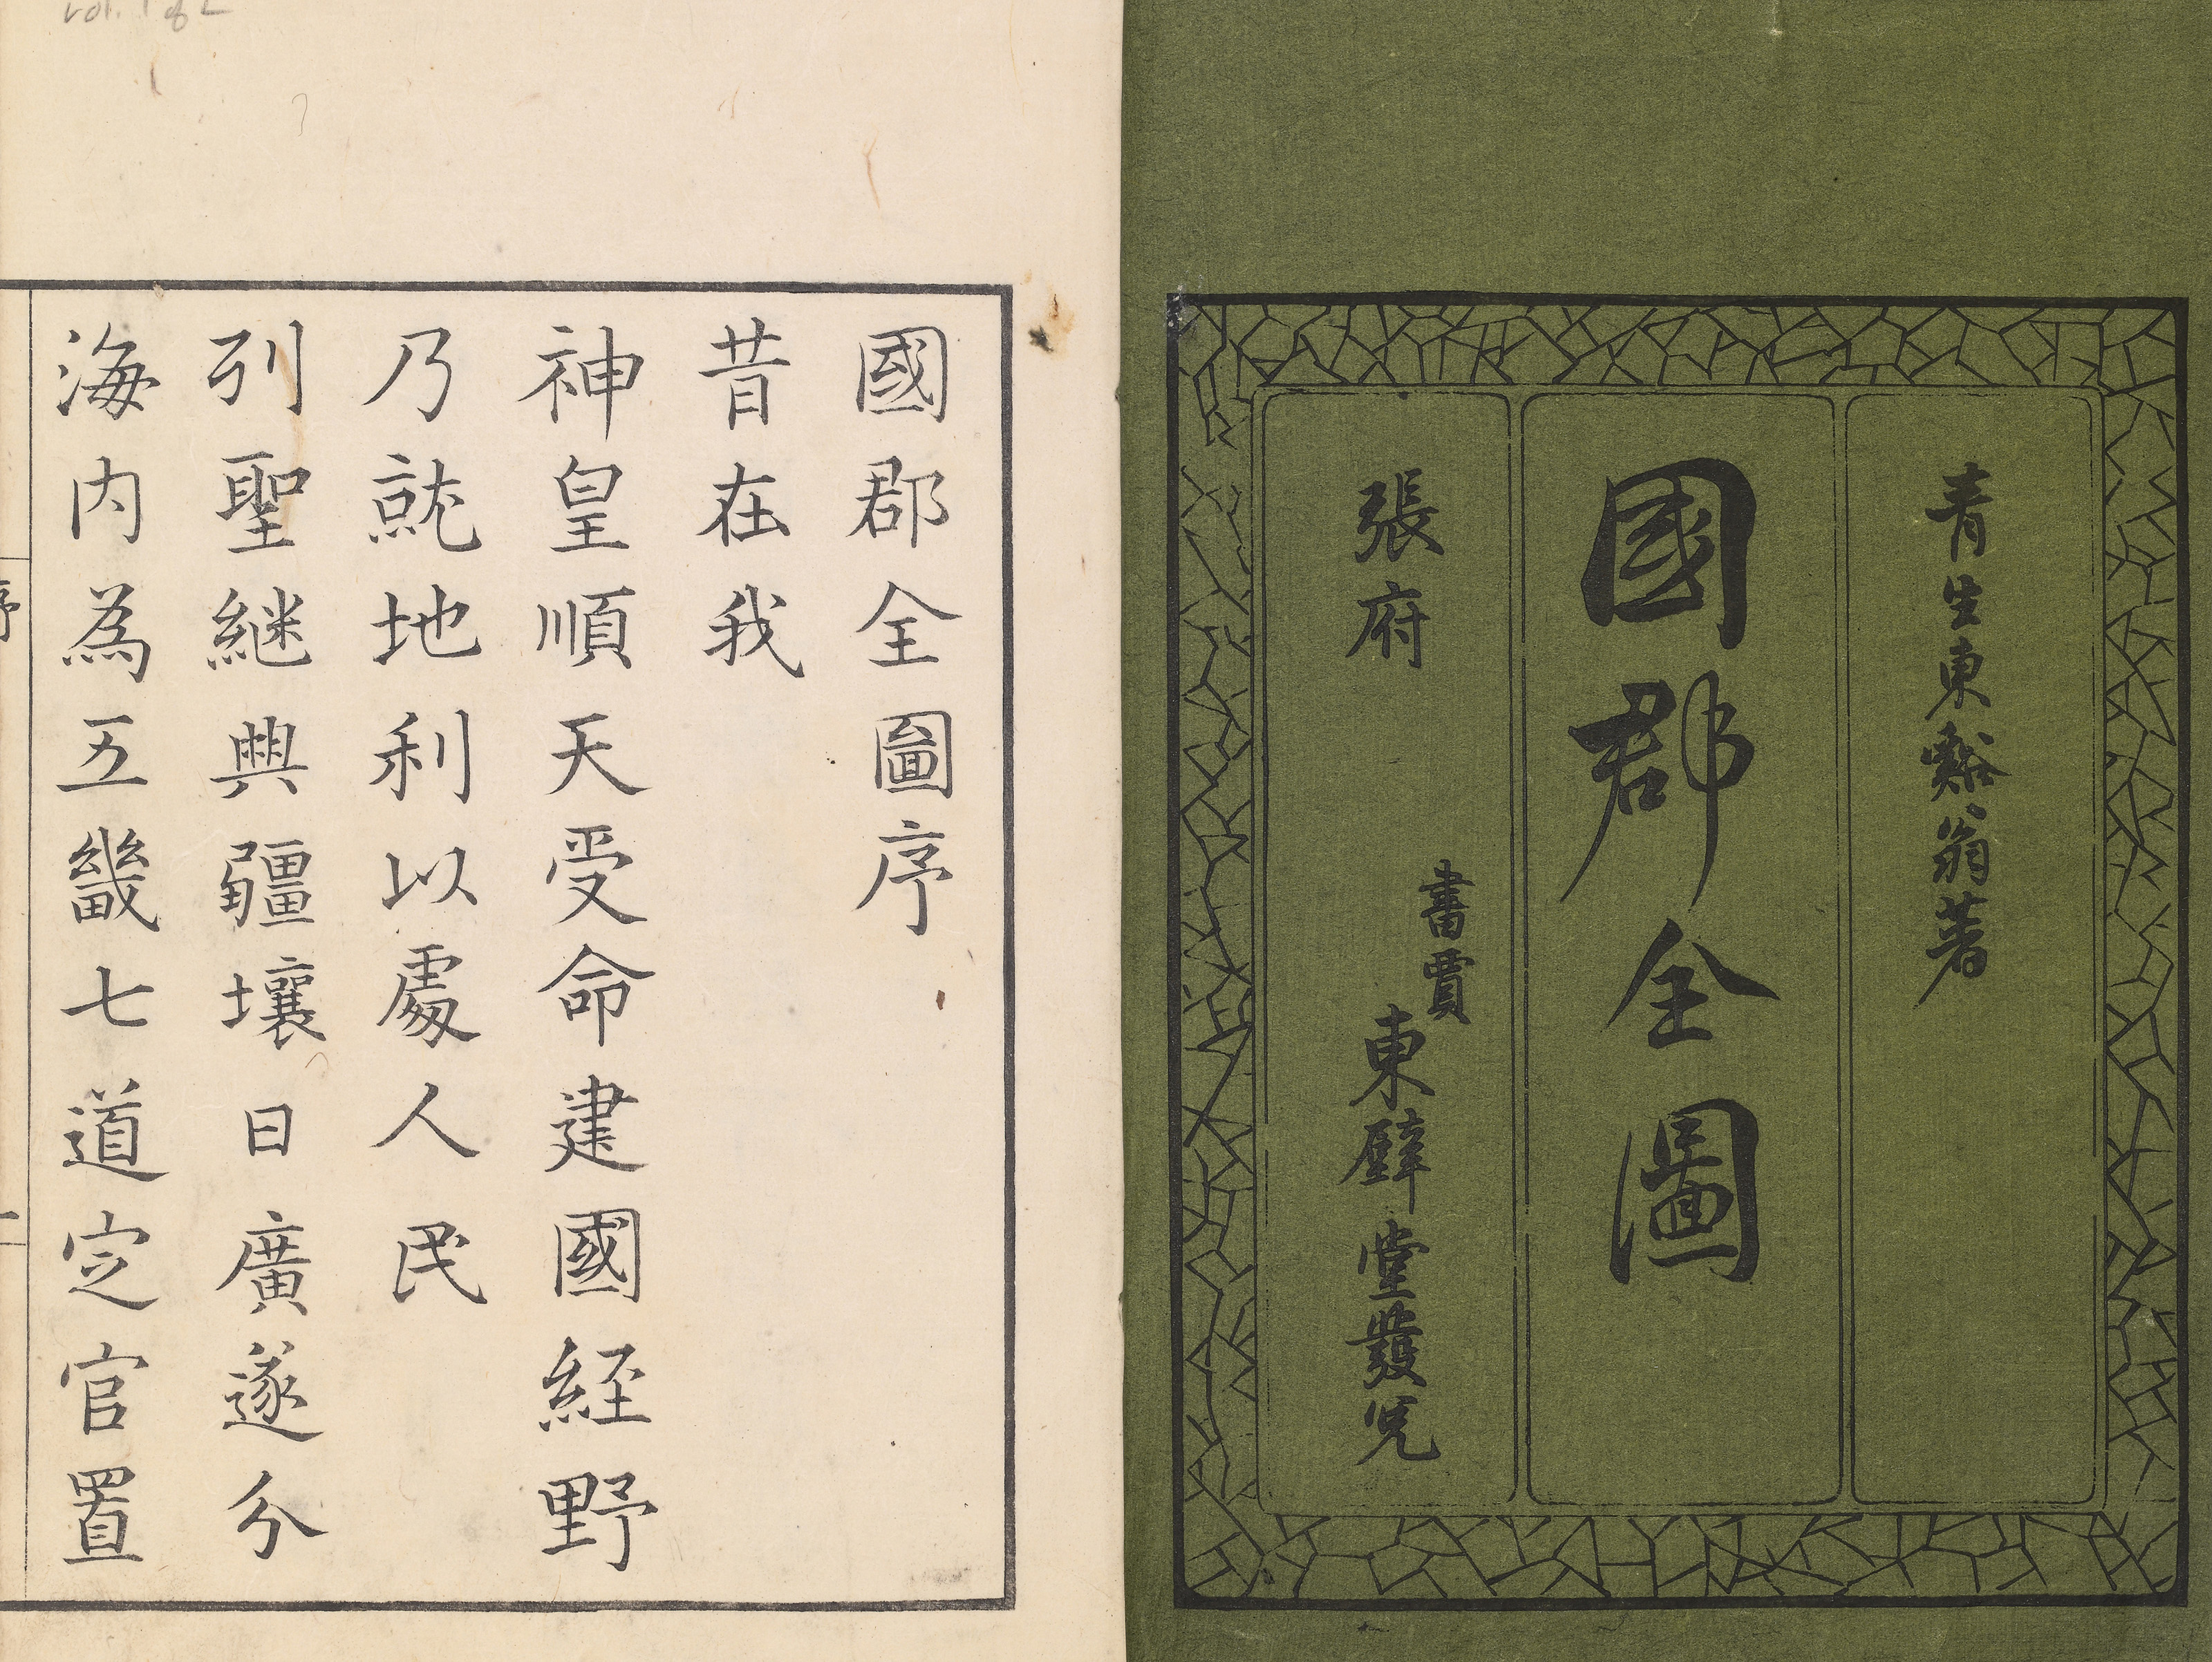 青生東谿翁著
國郡全圖
張府
書賈
東壁堂發兌
vol. 1 of 2
國郡全圖序
昔在我
神皇順天受命建國経野
乃就地利以處人民
列聖継興疆壤日廣遂分
海内為五畿七道定官置
序